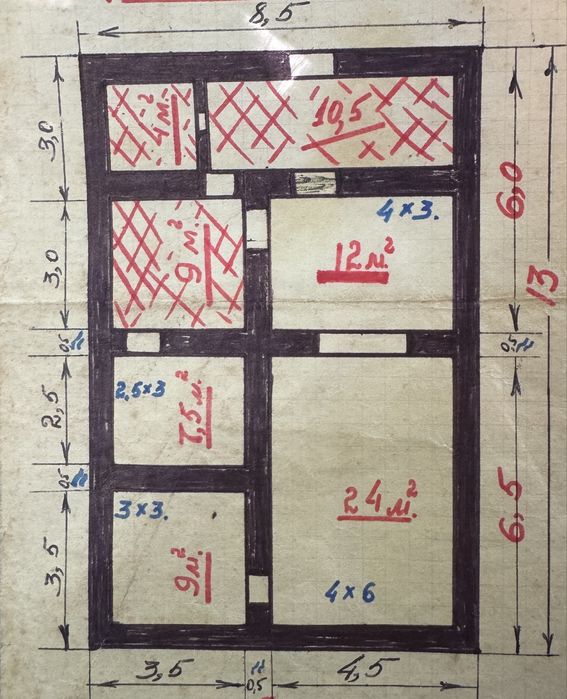 8,5
4 м.²
10,5
3,0
6,0
4×3.
9 м.²
12 м²
13
3,0
0,5 м
0,5 м
2,5×3
7,5 м.²
2,5
24 м.²
0,5 м
6,5
3×3.
9 м.²
4×6
3,5
3,5
м
0,5
4,5